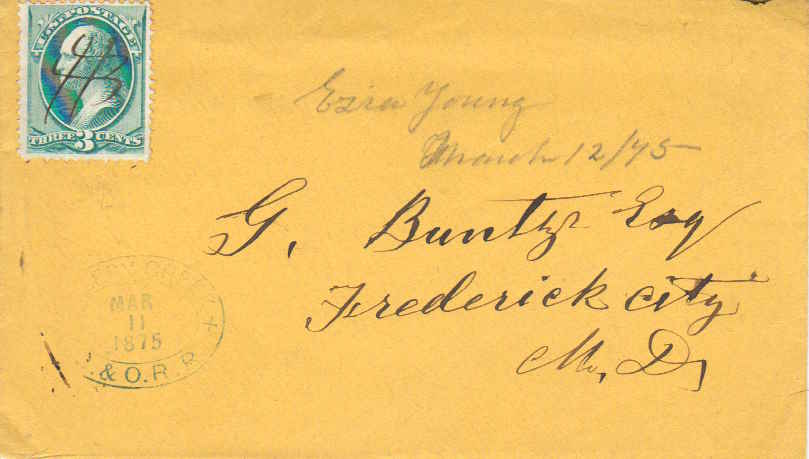 U.S. POSTAGE
THREE 3 CENTS
Ezra Young
March 12/75
G. Buntz Esq
Frederick city
M. D,
MAR
11
1875
& O. R. R